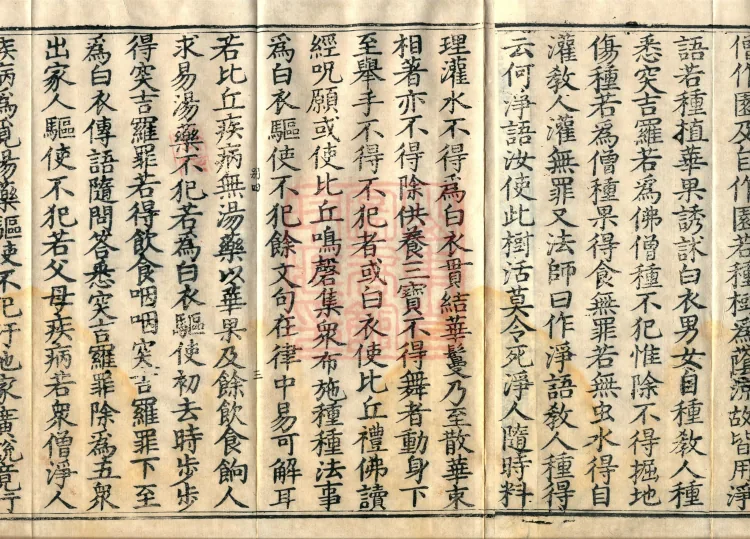 僧作園及自作園若種植為蔭涼故皆用淨
語若種植華果誘詠白衣男女自種教人種
悉突吉羅若為佛僧種不犯惟除不得掘地
傷種若為僧種果得食無罪若無虫水得自
灌教人灌無罪又法師曰作淨語教人種得
云何淨語汝使此樹活莫令死淨人隨時料
理灌水不得為白衣貫結華鬘乃至散華束
相著亦不得除供養三寶不得舞者動身下
至舉手不得不犯者或白衣使比丘禮佛讀
經呪願或使比丘鳴磬集衆布施種種法事
為白衣驅使不犯餘文句在律中易可解耳
三
若比丘疾病無湯藥以華果及餘飲食餉人
求易湯藥不犯若為白衣驅使初去時步步
得突吉羅罪若得飲食咽咽突吉羅罪下至
為白衣傳語隨問答悉突吉羅罪除為五衆
出家人驅使不犯若父母疾病若衆僧淨人
疾病為覓湯藥驅使不犯汙他家廣說竟行